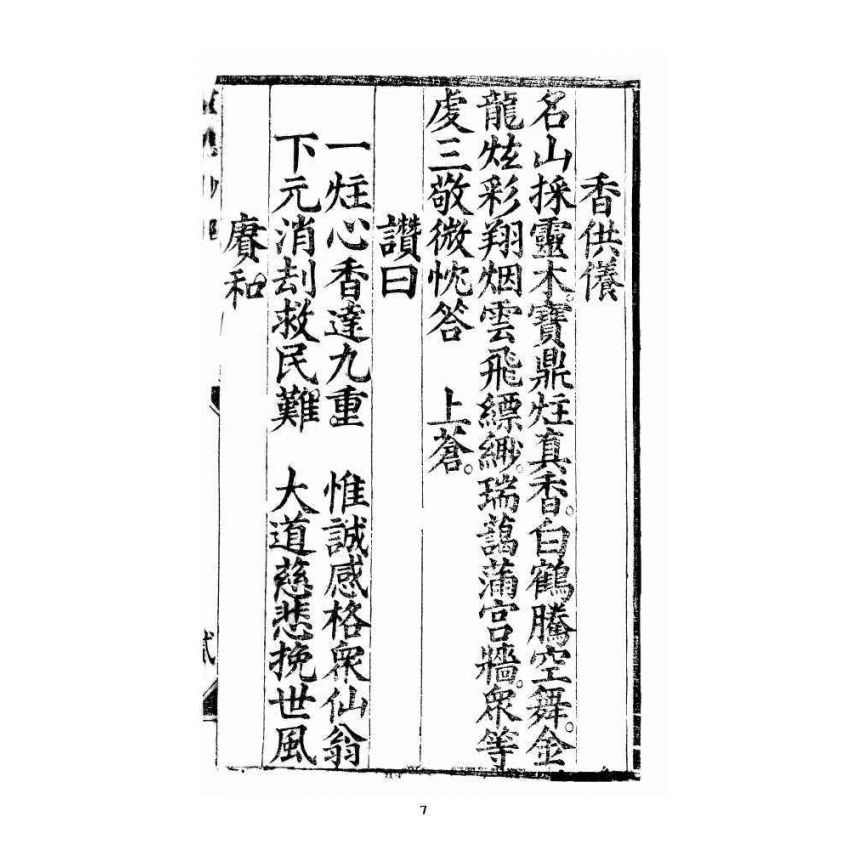 香供儀
名山採靈木。寶鼎炷真香。白鶴騰空舞。金
龍炫彩翔烟雲飛縹緲。瑞藹滿宮牆。衆等
虔三敬微忱答　上蒼。
讚曰
一炷心香達九重　惟誠感格衆仙翁
下元消刦救民難　大道慈悲挽世風
賡和
7